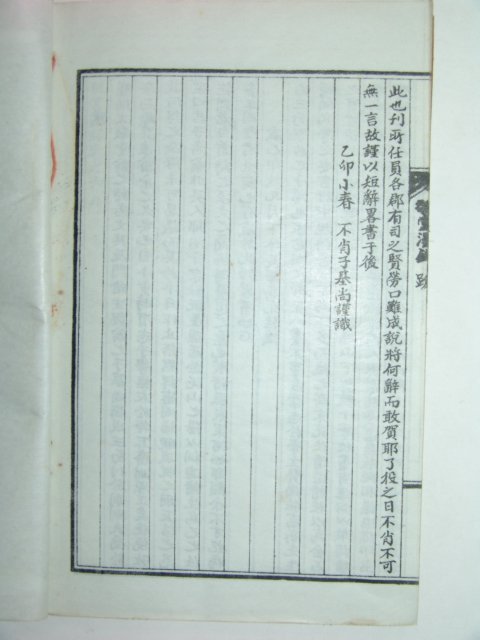 此也刊所任員各郡有司之賢勞口難成說將何辭而敢賀耶了役之日不肖不可
無一言故謹以短辭畧書于後
乙卯小春 不肖子基尚謹識
跋